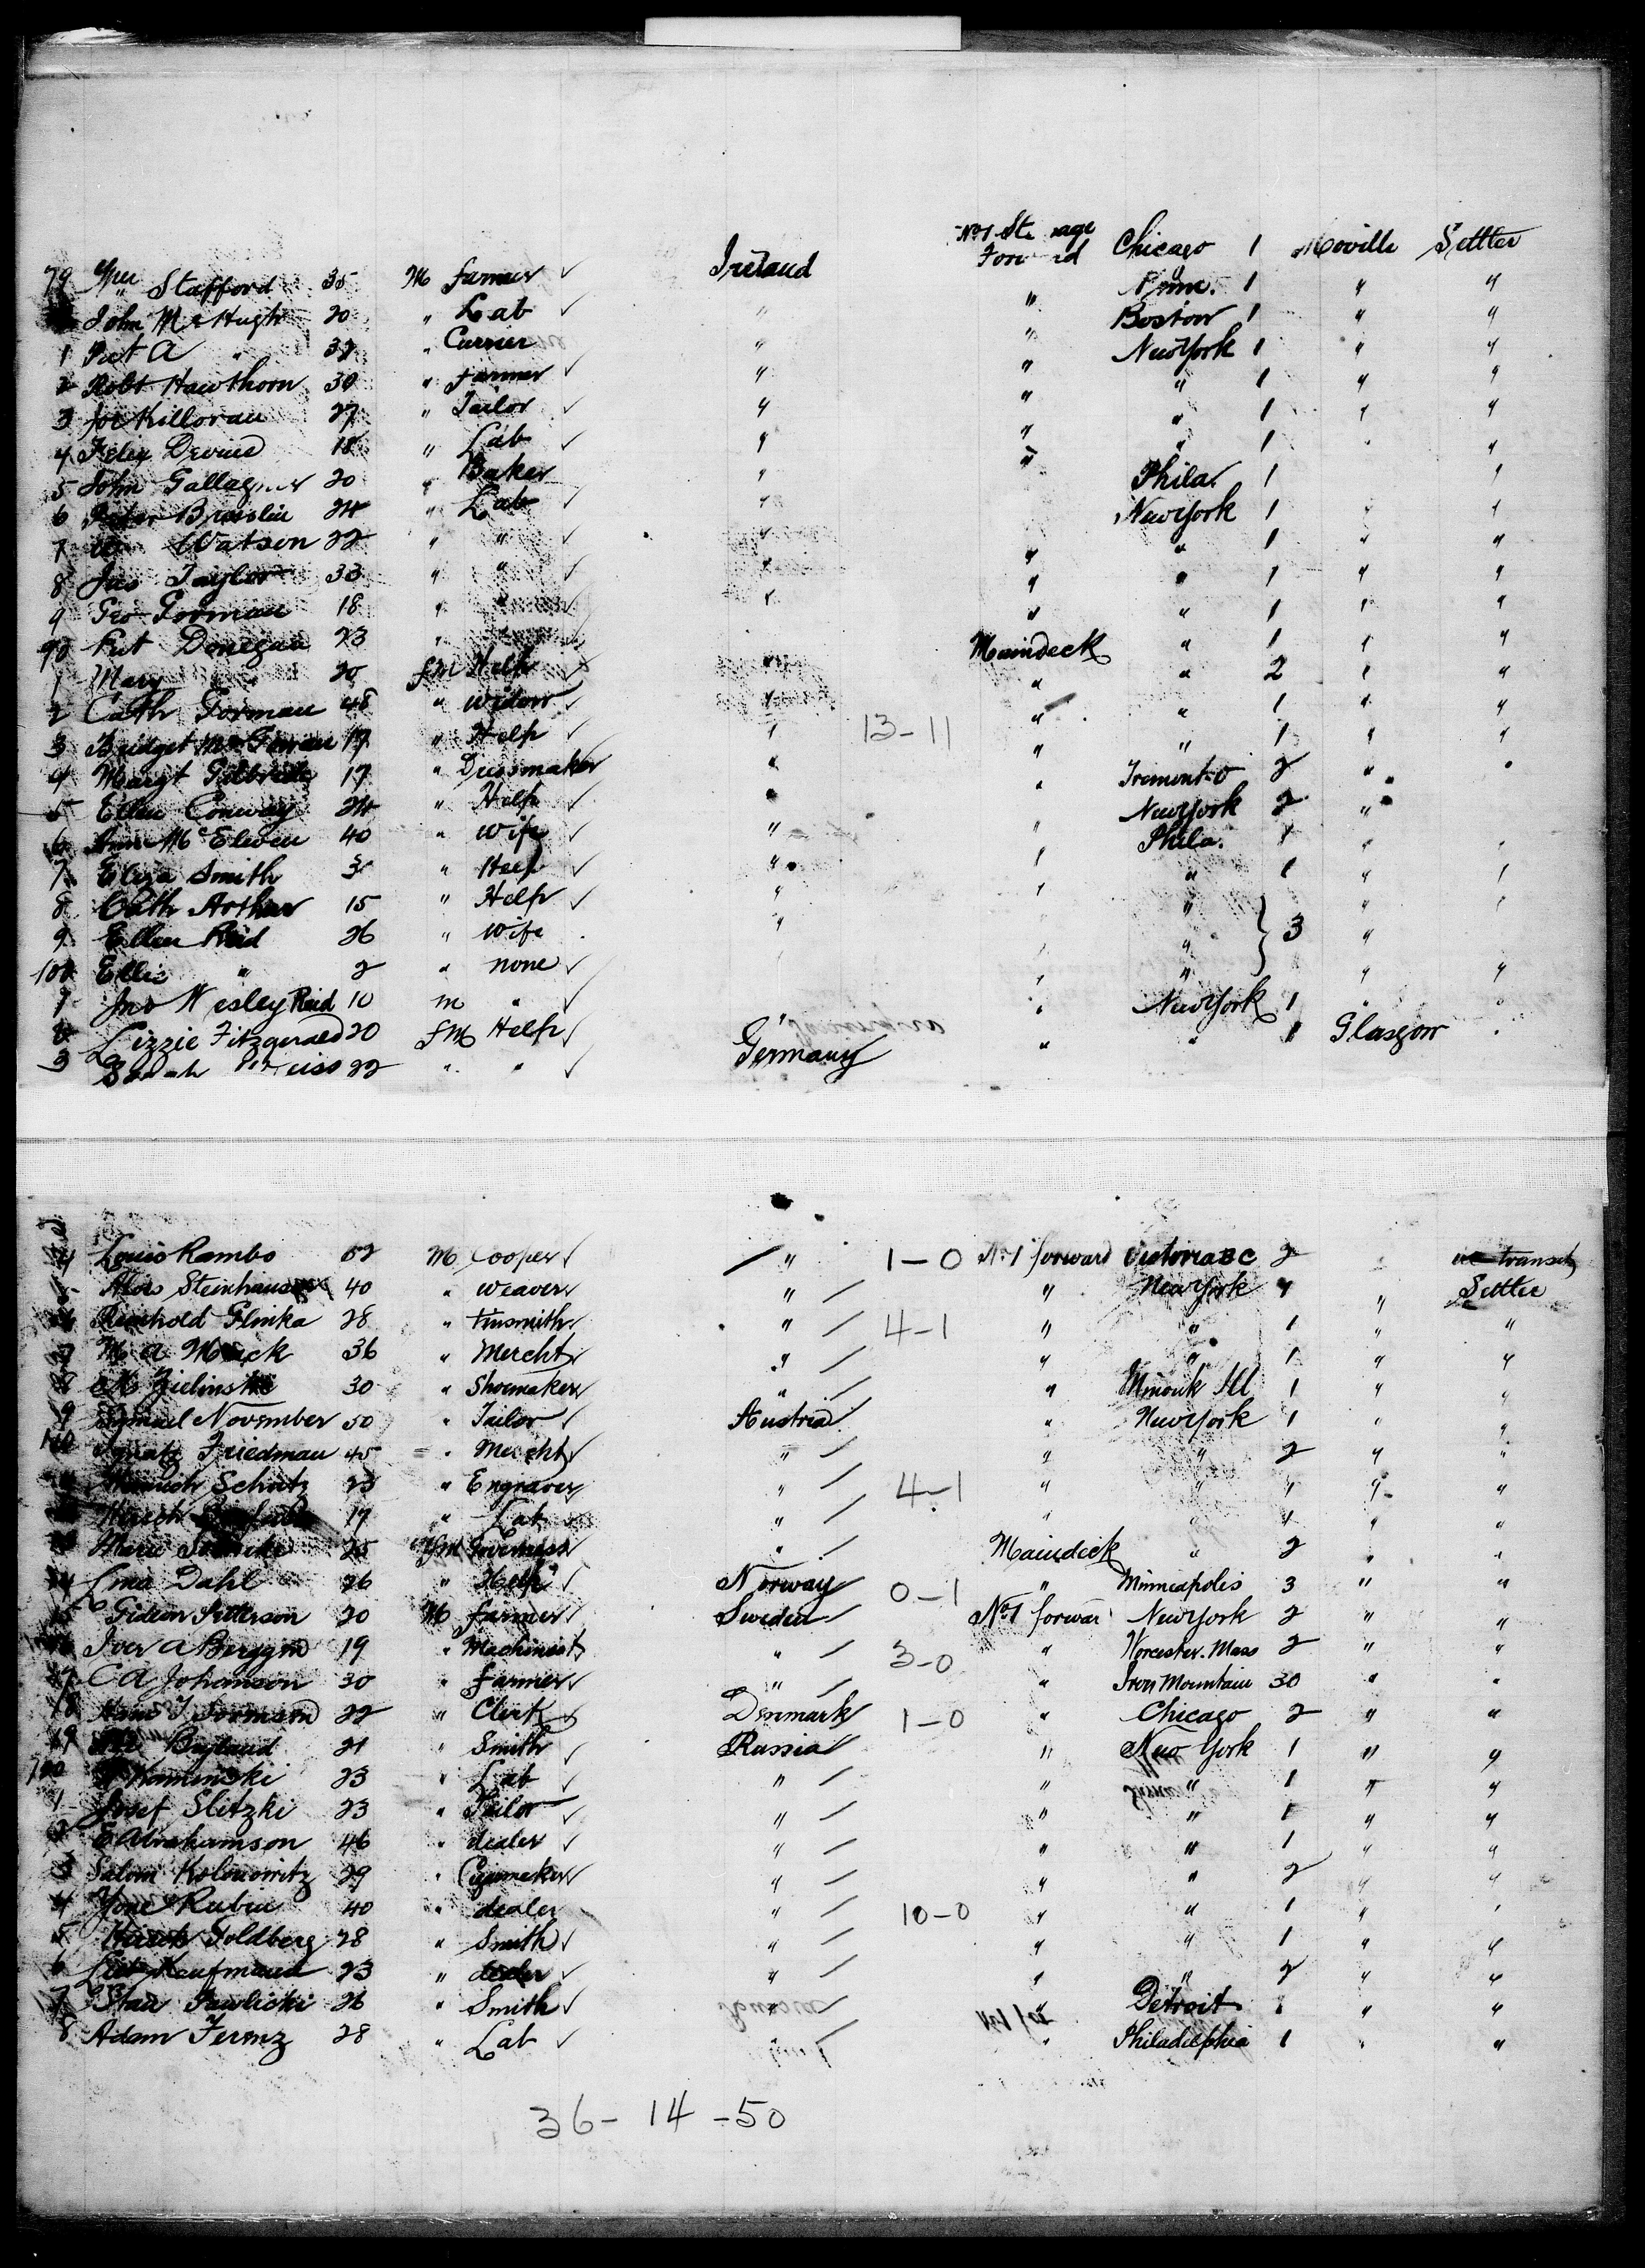 79 Wm Stafford 35 M farmer ✓ Ireland No 1 St age Forw rd Chicago 1 Moville Settler
John McHugh 20 " Lab ✓ " " 1 " "
1 Pat A " 32 " Currier " " Boston 1 " "
2 Robt Hawthorn 30 " farmer ✓ " " New York 1 " "
3 Joe Killoran 27 " Tailor ✓ " " " 1 " "
4 Felix Devine 18 " Lab ✓ " " " 1 " "
5 John Gallagher 20 " Baker " " " 1 "
6 Peter Breslin 24 " Lab ✓ " Phila. 1 "
7 Watson 22 " " ✓ " New York 1 " "
8 Jas Taylor 33 " " ✓ " " " 1 " "
9 Geo Gorman 18 " " ✓ " " " 1 " "
90 Pat Donegan 23 " " ✓ " " 1 " "
1 Mary " 20 fM Help ✓ " Maindeck " 1 " "
2 Cath Gorman 48 " Widow ✓ " " " 2 " "
3 Bridget McGowan 19 " Help ✓ " 13-11 " " 1 " "
4 Margt Gilbride 17 " Dressmaker " " " 1 " "
5 Ellen Conway 24 " Help ✓ " " Tremont-O 2 "
6 Ann McElwen 40 " Wife ✓ " " New York 2 "
7 Eliza Smith " Help ✓ " " Phila. 1 "
8 Cath Arthur 15 " Help ✓ " " " 1 "
9 Ellen Reid 26 " Wife " " " 3 "
100 Ellie " 2 " none ✓ " "
1 Jno Wesley Reid 10 m " ✓ " " " "
2 Lizzie Fitzgerald 20 fM Help ✓ " " New York 1
3 Sarah 22 " " ✓ Germany " " 1 Glasgow
4 Louis Rambo 52 M Cooper ✓ " 1-0 No 1 forward Victoria BC 2 transit
5 Alois Steinhauser 40 " weaver ✓ " " New York " " Settler
6 Reinhold Glinka 28 " tinsmith ✓ " 4-1 " " 1 " "
7 M A Mack 36 " Mercht ✓ " " " 1 " "
8 Zielinski 30 " Shoemaker ✓ " " Minonk Ill 1 " "
9 Samuel November 50 " Tailor ✓ Austria " New York 1 " "
110 Ignatz Friedman 45 " Mercht ✓ " " " 2 " "
Heinrich Schutz 23 " Engraver " 4-1 " " " " "
Hersch 19 " Lab ✓ " " " 1 " "
Marie 25 fm Governess ✓ " Maindeck " 2 " "
14 Lina Dahl 26 " Help ✓ Norway 0-1 " Minneapolis 3 " "
15 Gideon Petterson 20 M farmer ✓ Sweden No 1 forwar New York 2 " "
16 Iver A 19 " Machinist " 3-0 " Worcester. Mass 2 " "
17 C A Johanson 30 " farmer ✓ " " Iron Mountain 30 " "
18 Hans J 22 " Clerk ✓ Denmark 1-0 " Chicago 2 " "
19 21 " Smith ✓ Russia " New York 1 " "
120 Kaminski 23 " Lab ✓ " " " 1 " "
1 Josef Slitzki 23 " Tailor ✓ " " " 1 " "
2 E Abrahamson 46 " dealer ✓ " " " 1 " "
3 Salom Kolonowitz 29 " Cigrmaker ✓ " " " 2 " "
4 Yone Rubin 40 " dealer " 10-0 " " 1 "
5 Hirsch Goldberg 28 " Smith ✓ " " " 1 " "
6 Kaufmand 23 " dealer ✓ " " " 2 " "
7 Stan Pawlicki 26 " Smith ✓ " " Detroit 1 " "
8 Adam Fermz 28 " Lab ✓ " Philadelphia 1 " "
36 - 14 - 50